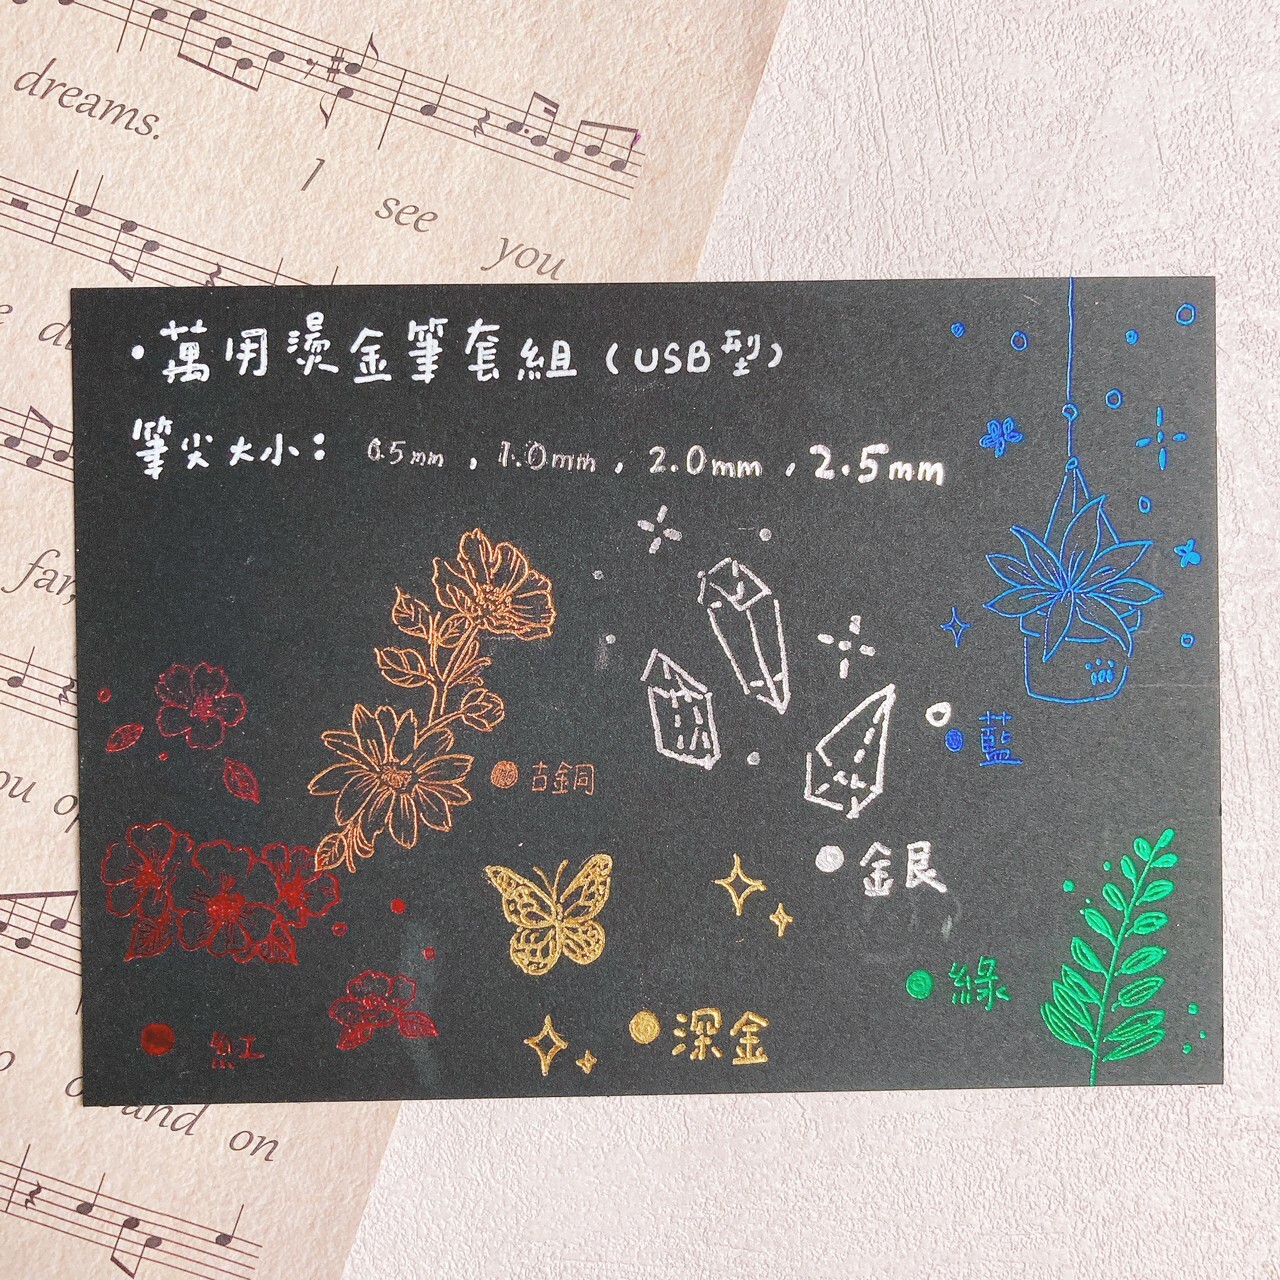 dreams.
I see you
far,
and on
·萬用燙金筆套組(USB型)
筆尖大小: 0.5mm , 1.0mm , 2.0mm , 2.5mm
古銅
藍
銀
綠
深金
紅